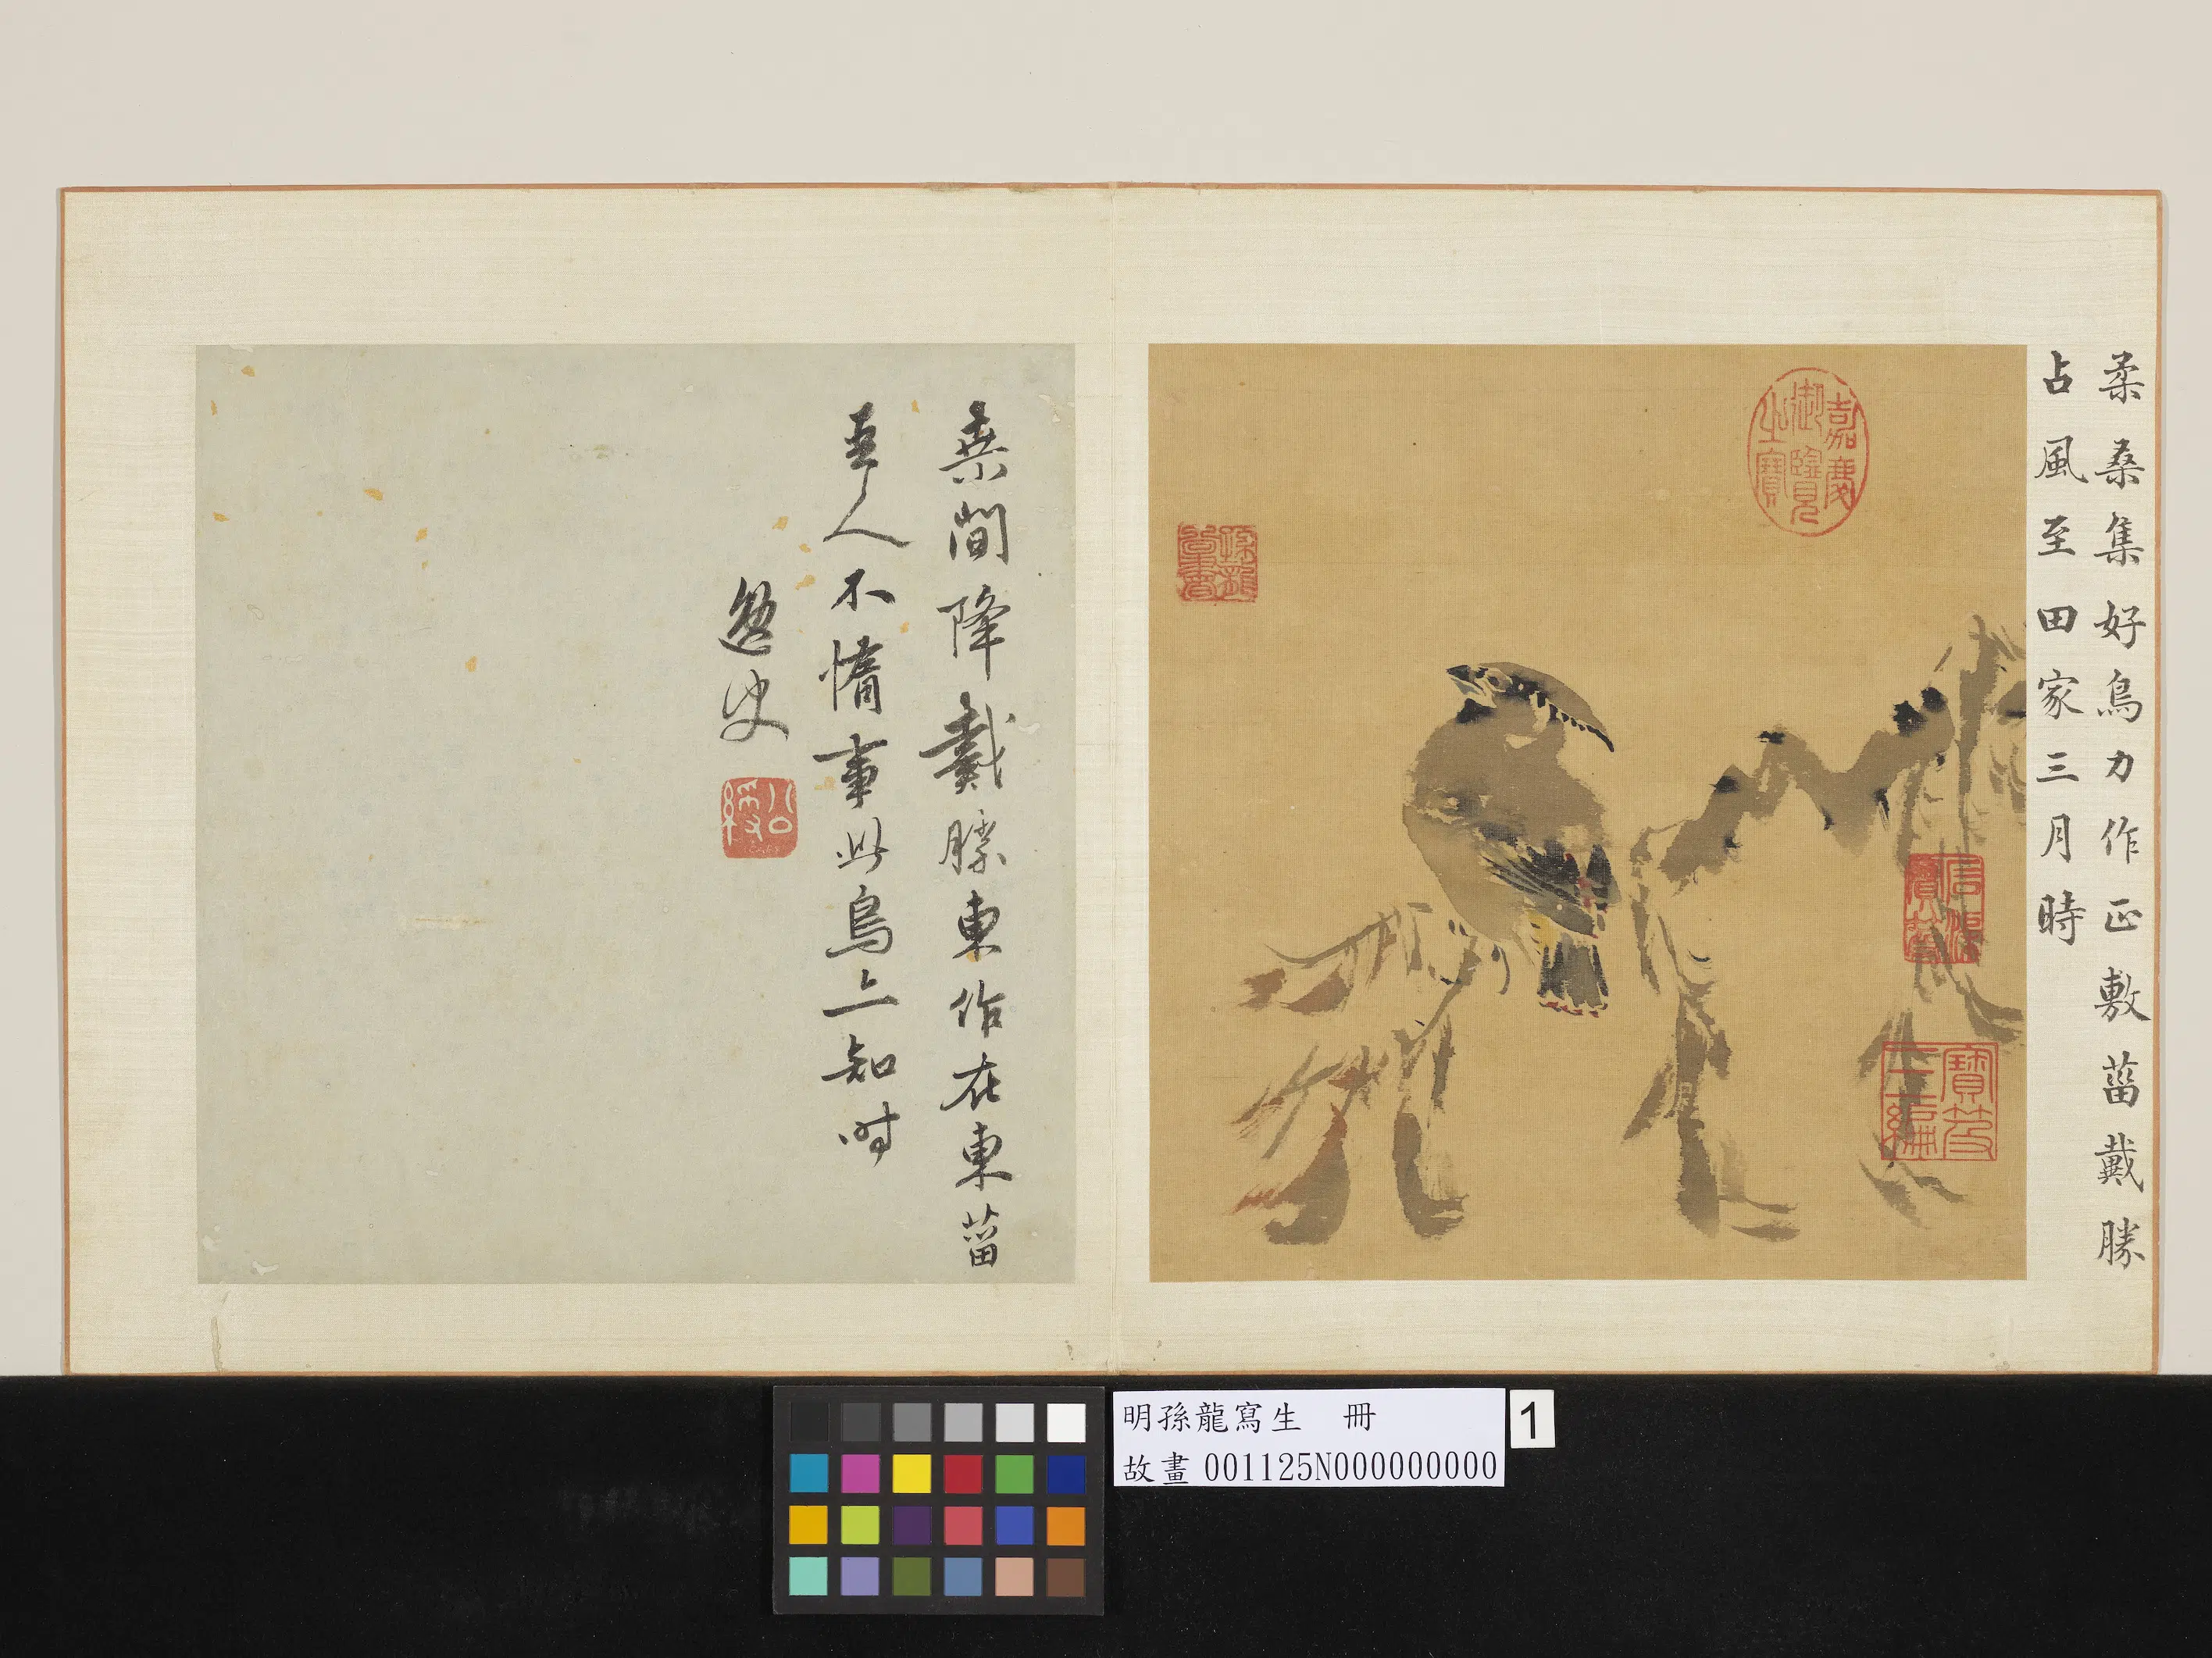 柔桑集好鳥力作正敷菑戴勝
占風至田家三月時
嘉慶御覽之寶
寶笈三編
桑間降戴勝東作在東菑
吉人不惰事此鳥亦知時
逸史
公綬
明孫龍寫生 冊
故畫 001125N000000000
1